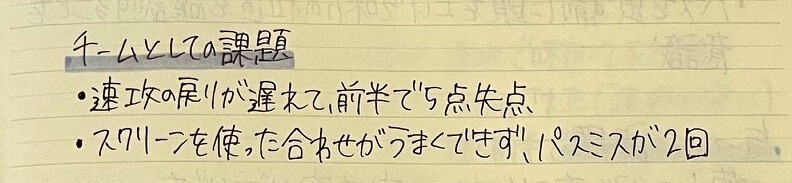 チームとしての課題
・速攻の戻りが遅れて、前半で5点失点
・スクリーンを使った合わせがうまくできず、パスミスが2回